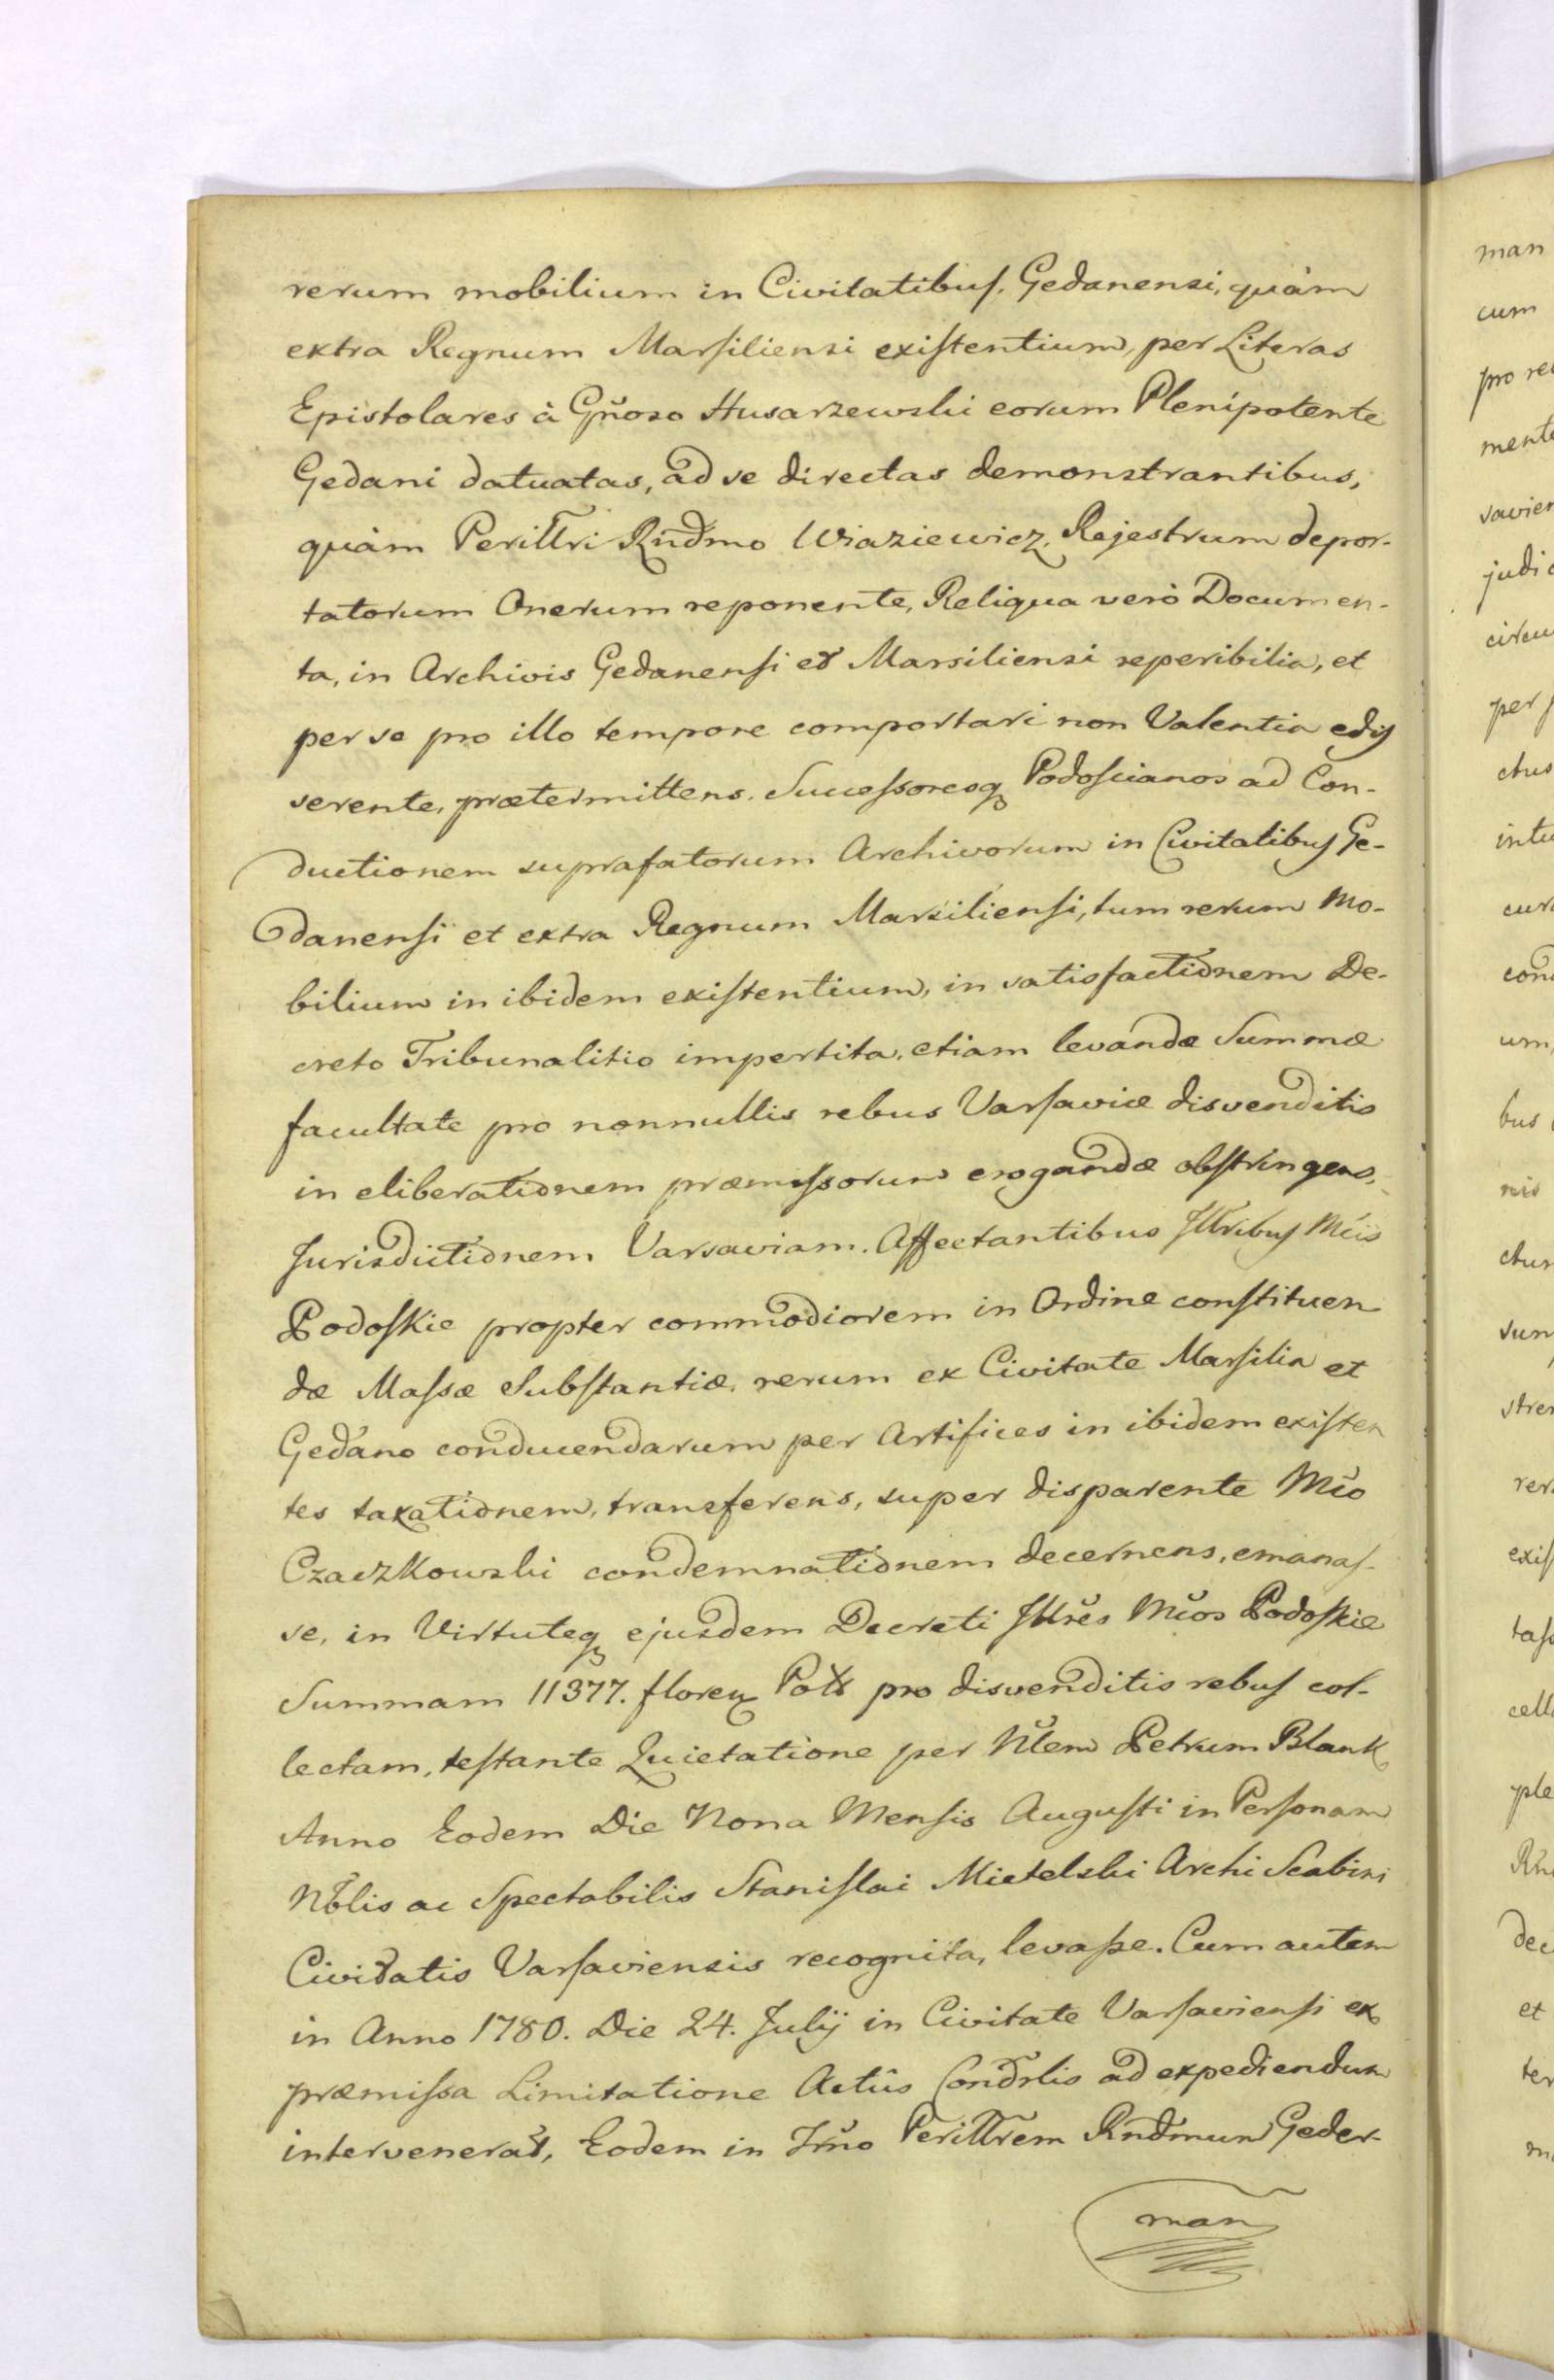 rerum mobilium in Civitatibus, Gedanensi, quàm
extra Regnum Marsiliensi existentium, per Literas
Epistolares à Gňoso Husarzewski eorum Plenipotente
Gedani datuatas, ad se directas demonstrantibus,
quàm Perillri Rndmo Wiaziewicz, Rejestrum depor-
tatorum Onerum reponente, Reliqua verò Documen-
ta, in Archivis Gedanensi et Marsiliensi reperibilia, et
per se pro illo tempore comportari non Valentia edis
serente, prætermittens. Successoresq Podoscianos ad Con-
ductionem suprafatorum Archivorum in Civitatibus Ge-
danensi et extra Regnum Marsiliensi, tum rerum Mo-
bilium in ibidem existentium, in satisfactionem De-
creto Tribunalitio impertita, etiam levandæ Summæ
facultate pro nonnullis rebus Varsaviæ disvenditis
in eliberationem præmissorum erogandæ obstringens,
Jurisdictionem Varsaviam. Affectantibus Illribus Mcis
Podoskie propter commodiorem in Ordine constituen
dæ Massæ Substantiæ, rerum ex Civitate Marsilia et
Gedano conducendarum per Artifices in ibidem existen
tes taxationem, transferens, super disparente Mco
Czaczkowski condemnationem decernens, emanas-
se, in Virtuteq ejusdem Decreti Illres Mcos Podoskie
Summam 11377. floren Polł pro disvenditis rebus col-
lectam, testante Quietatione per Nlem Petrum Blank
Anno Eodem Die Nona Mensis Augusti in Personam
Nblis ac Spectabilis Stanislai Mietelski Archi Scabini
Civitatis Varsaviensis recognita, levasse. Cum autem
in Anno 1780. Die 24. Julij in Civitate Varsaviensi ex
præmissa Limitatione Actûs Condrlis ad expediendum
intervenerat, Eodem in Trno Perillrem Rndmum Geder-
man
man
cum
pro re
mente
savien
judic
circu
per
ctus
intu
cura
con
um,
bus
nis
ctur
sun
stren
rer
exis
tas
cell
ple
dec
et
ter